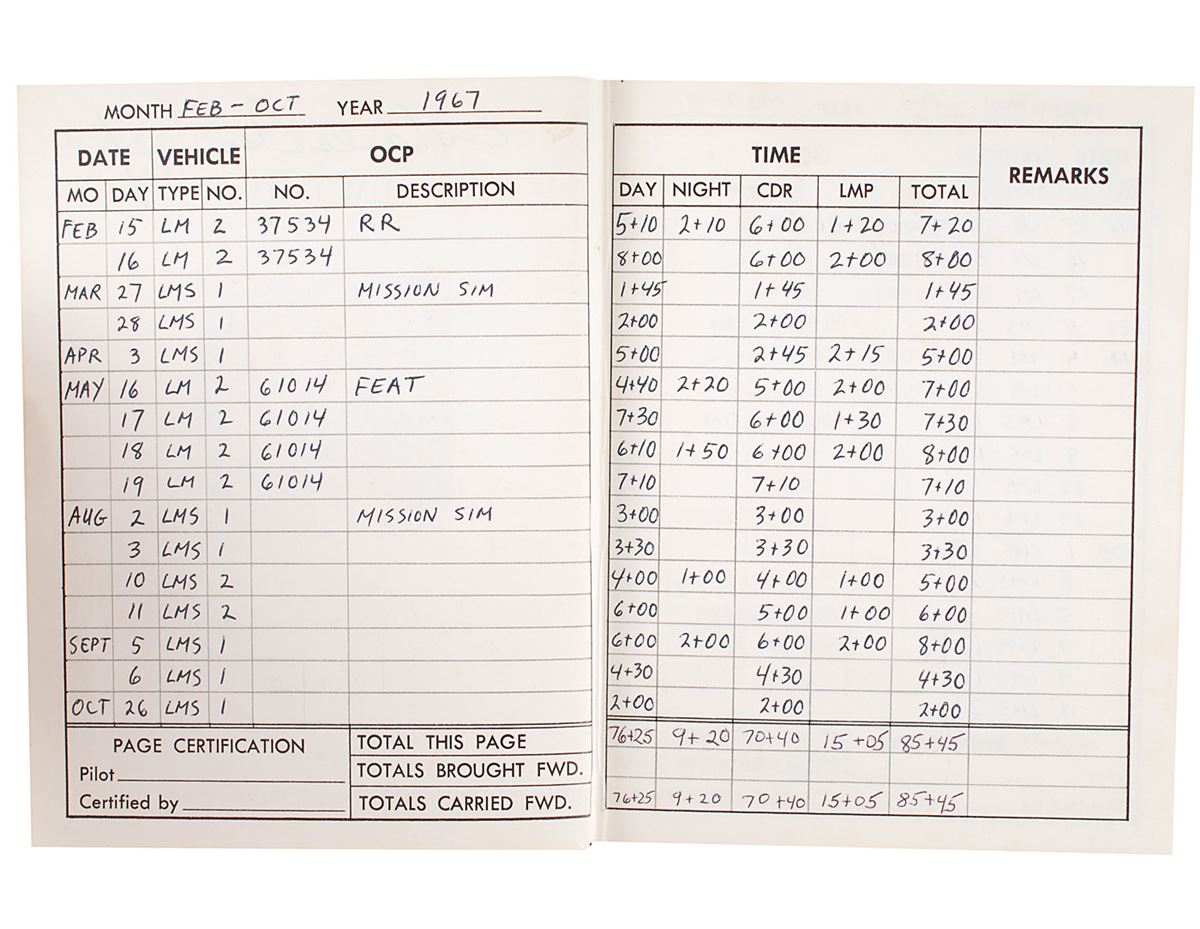 MONTH FEB - OCT YEAR 1967
DATE VEHICLE OCP TIME REMARKS
MO DAY TYPE NO. NO. DESCRIPTION DAY NIGHT CDR LMP TOTAL
FEB 15 LM 2 37534 RR 5+10 2+10 6+00 1+20 7+20
16 LM 2 37534 8+00 6+00 2+00 8+00
MAR 27 LMS 1 MISSION SIM 1+45 1+45 1+45
28 LMS 1 2+00 2+00 2+00
APR 3 LMS 1 5+00 2+45 2+15 5+00
MAY 16 LM 2 61014 FEAT 4+40 2+20 5+00 2+00 7+00
17 LM 2 61014 7+30 6+00 1+30 7+30
18 LM 2 61014 6+10 1+50 6+00 2+00 8+00
19 LM 2 61014 7+10 7+10 7+10
AUG 2 LMS 1 MISSION SIM 3+00 3+00 3+00
3 LMS 1 3+30 3+30 3+30
10 LMS 2 4+00 1+00 4+00 1+00 5+00
11 LMS 2 6+00 5+00 1+00 6+00
SEPT 5 LMS 1 6+00 2+00 6+00 2+00 8+00
6 LMS 1 4+30 4+30 4+30
OCT 26 LMS 1 2+00 2+00 2+00
PAGE CERTIFICATION TOTAL THIS PAGE 76+25 9+20 70+40 15+05 85+45
Pilot TOTALS BROUGHT FWD.
Certified by TOTALS CARRIED FWD. 76+25 9+20 70+40 15+05 85+45